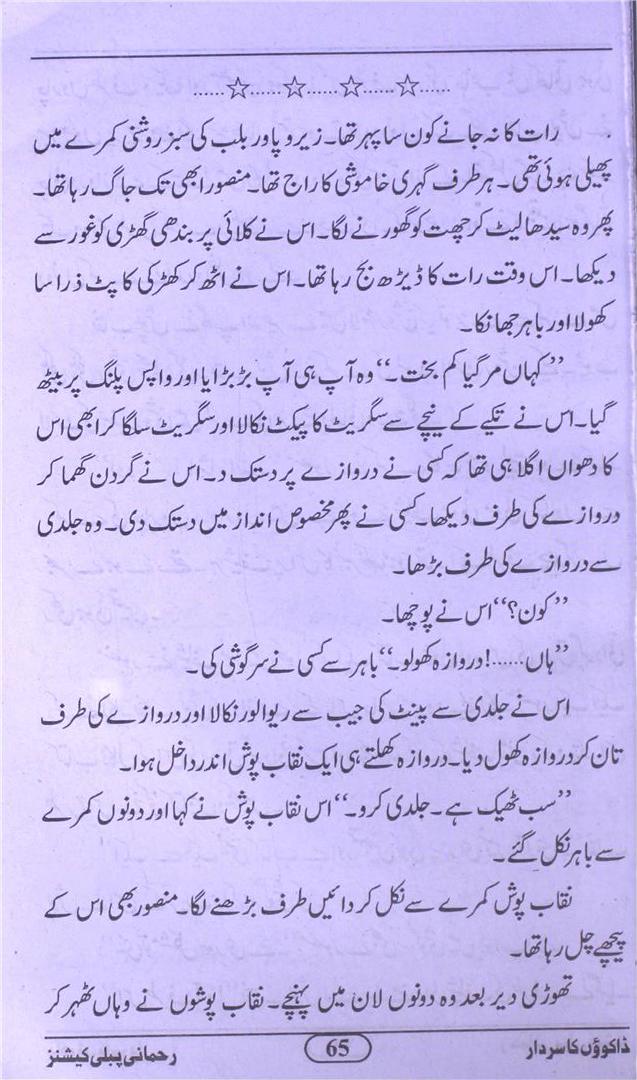 ......☆......☆......☆......☆......
رات کا نہ جانے کون سا پہر تھا۔ زیرو پاور بلب کی سبز روشنی کمرے میں
پھیلی ہوئی تھی۔ ہر طرف گہری خاموشی کا راج تھا۔ منصور ابھی تک جاگ رہا تھا۔
پھر وہ سیدھا لیٹ کر چھت کو گھورنے لگا۔ اس نے کلائی پر بندھی گھڑی کو غور سے
دیکھا۔ اس وقت رات کا ڈیڑھ بج رہا تھا۔ اس نے اٹھ کر کھڑکی کا پٹ ذرا سا
کھولا اور باہر جھانکا۔
’’کہاں مر گیا کم بخت۔‘‘ وہ آپ ہی آپ بڑبڑایا اور واپس پلنگ پر بیٹھ
گیا۔ اس نے تکیے کے نیچے سے سگریٹ کا پیکٹ نکالا اور سگریٹ سلگا کر ابھی اس
کا دھواں اگلا ہی تھا کہ کسی نے دروازے پر دستک د۔ اس نے گردن گھما کر
دروازے کی طرف دیکھا۔ کسی نے پھر مخصوص انداز میں دستک دی۔ وہ جلدی
سے دروازے کی طرف بڑھا۔
’’کون؟‘‘ اس نے پوچھا۔
’’ہاں......! دروازہ کھولو۔‘‘ باہر سے کسی نے سرگوشی کی۔
اس نے جلدی سے پینٹ کی جیب سے ریوالور نکالا اور دروازے کی طرف
تان کر دروازہ کھول دیا۔ دروازہ کھلتے ہی ایک نقاب پوش اندر داخل ہوا۔
’’سب ٹھیک ہے۔ جلدی کرو۔‘‘ اس نقاب پوش نے کہا اور دونوں کمرے
سے باہر نکل گئے۔
نقاب پوش کمرے سے نکل کر دائیں طرف بڑھنے لگا۔ منصور بھی اس کے
پیچھے چل رہا تھا۔
تھوڑی دیر بعد وہ دونوں لان میں پہنچے۔ نقاب پوشوں نے وہاں ٹھہر کر
ڈاکوؤں کا سردار 65 رحمانی پبلی کیشنز